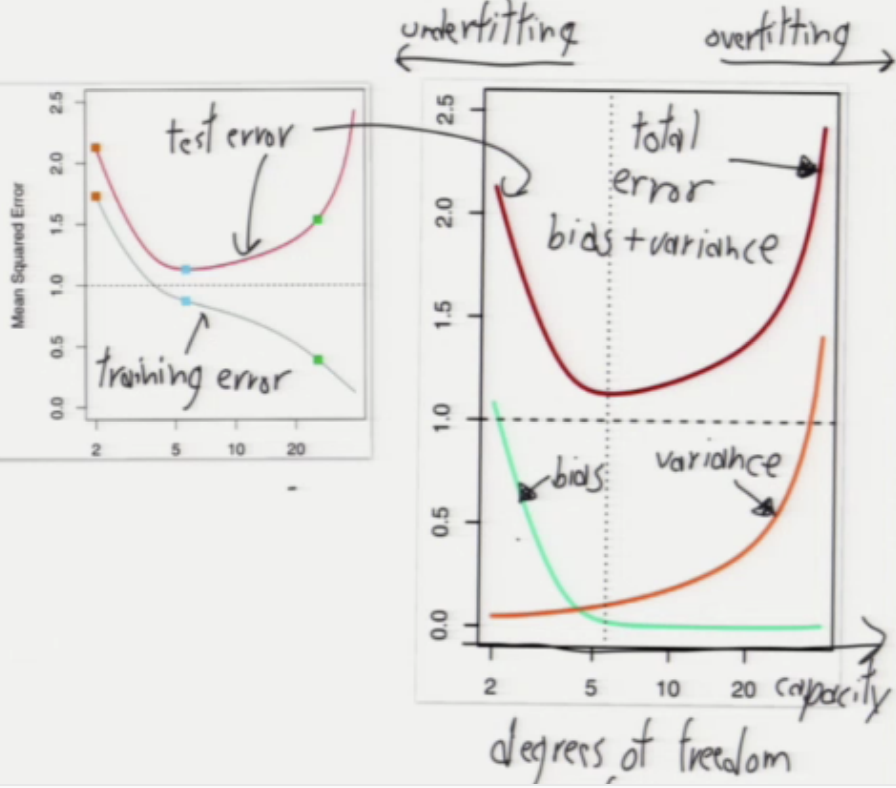 underfitting
overfitting
Mean Squared Error
2.5
2.0
1.5
1.0
0.5
0.0
2 5 10 20
test error
training error
2.5
2.0
1.5
1.0
0.5
0.0
total
error
bias + variance
bias
variance
2 5 10 20
capacity
degrees of freedom